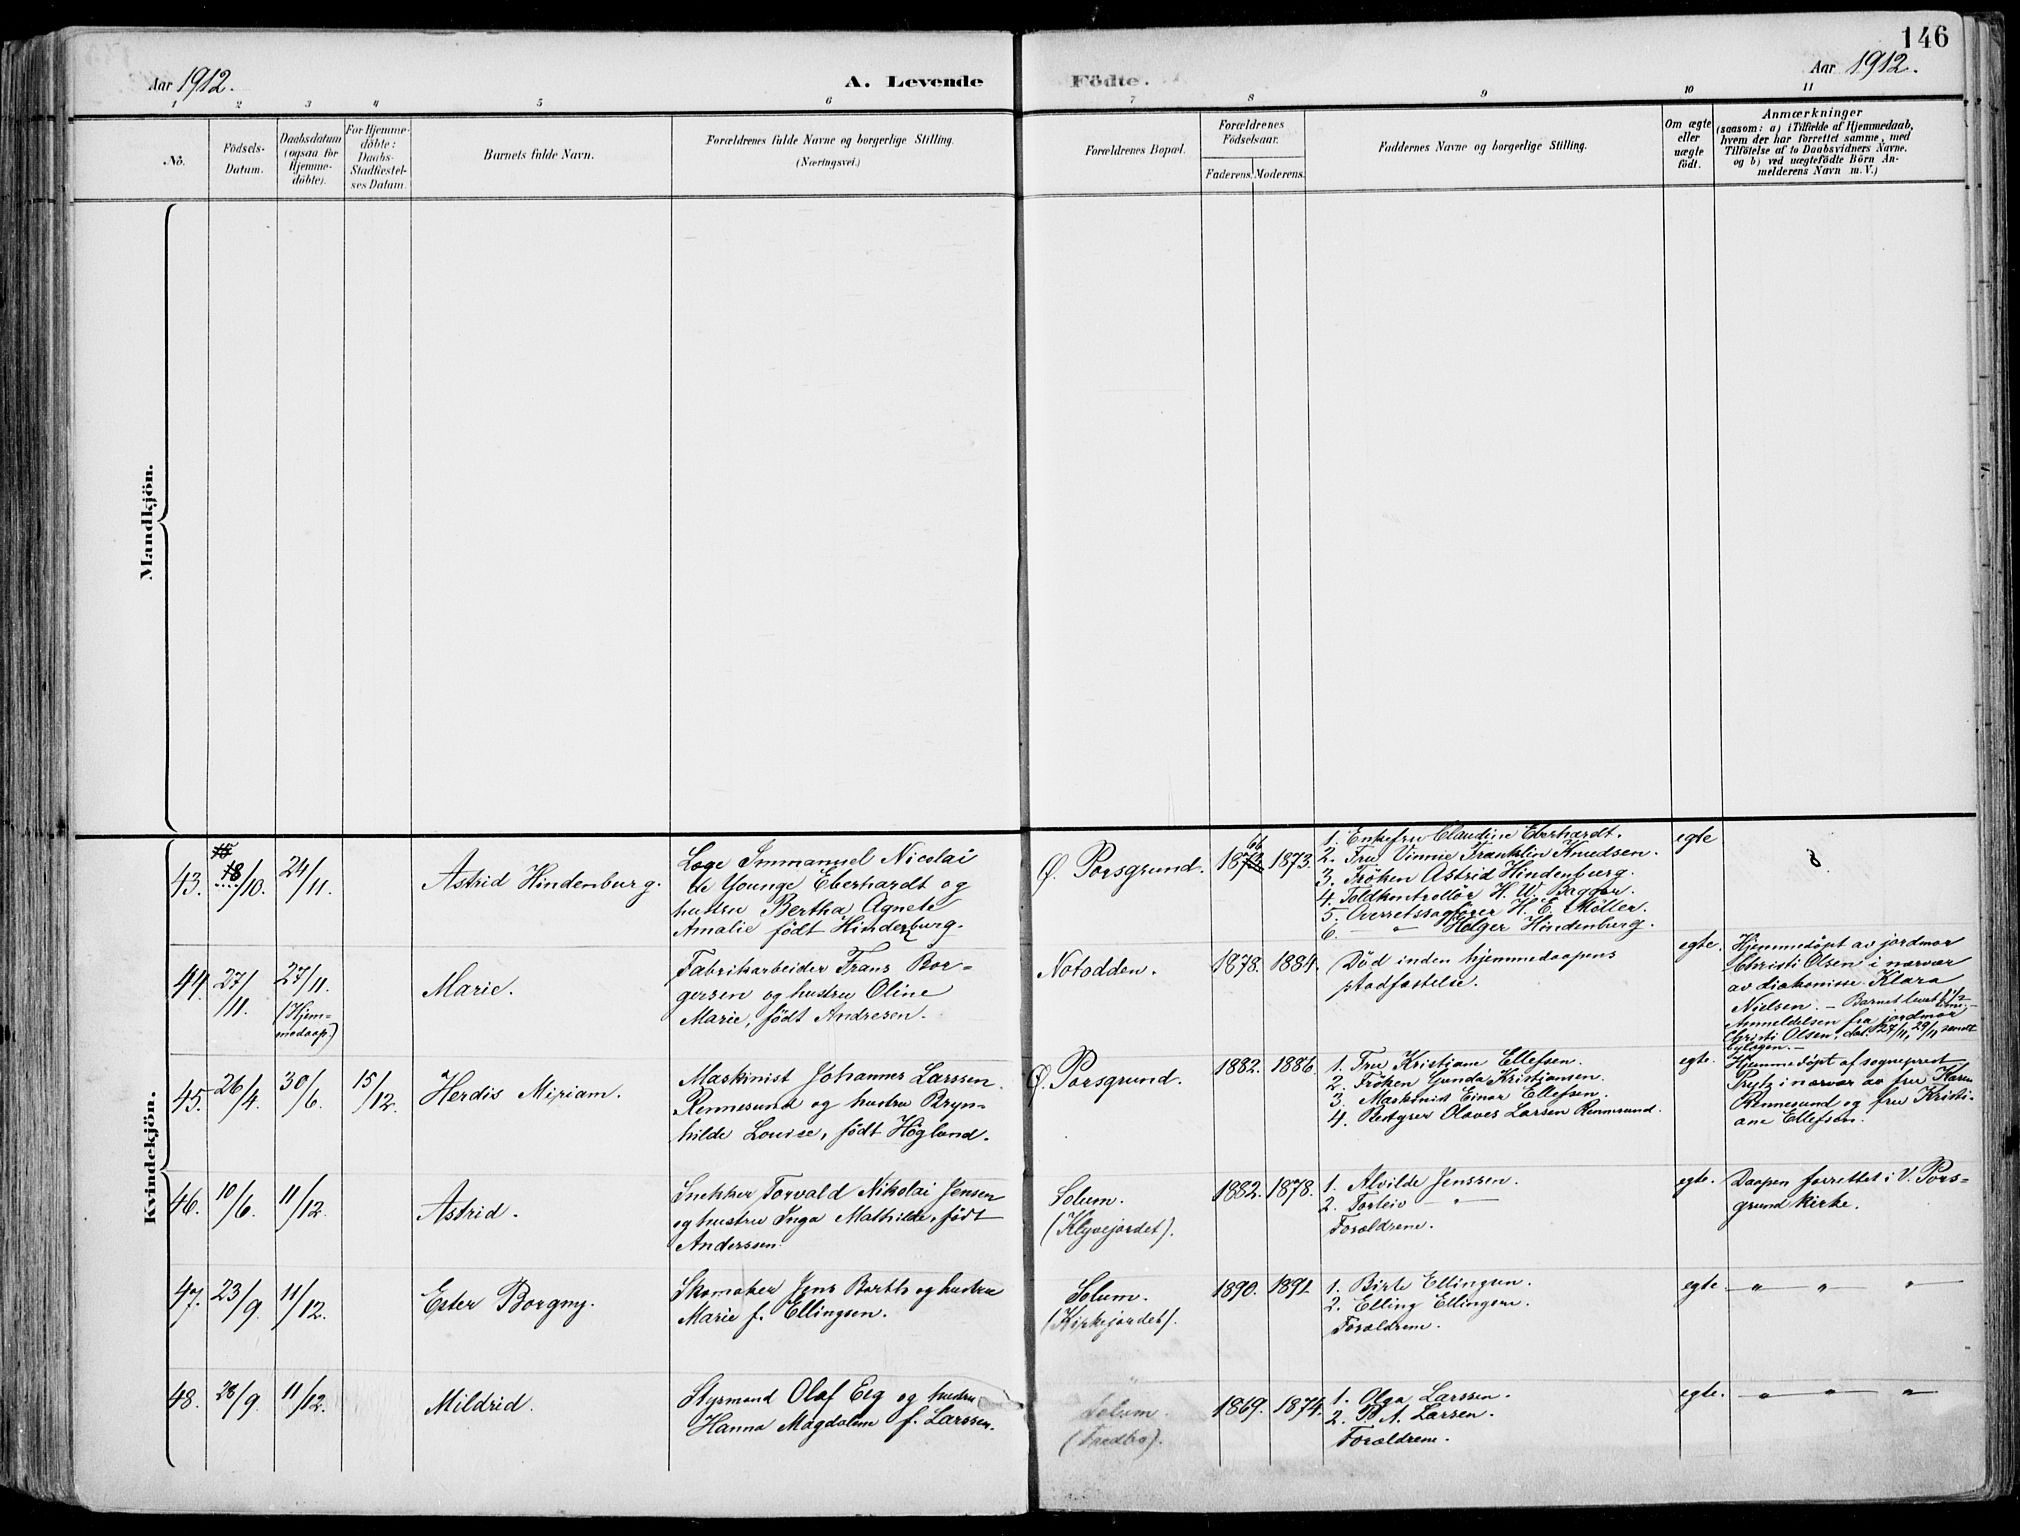 146
Aar 1912.
A. Levende Födte.
Aar 1912.
1 2 3 4 5 6 7 8 9 10 11
No.
Födsels-
Datum.
Daabsdatum
(ogsaa for
Hjemme-
döbte).
For Hjemme-
döbte:
Daabs-
Stadfæstel-
ses Datum.
Barnets fulde Navn.
Forældrenes fulde Navne og borgerlige Stilling.
(Næringsvei.)
Forældrenes Bopæl.
Forældrenes
Födselsaar.
Faderens. Moderens.
Faddernes Navne og borgerlige Stilling.
Om ægte
eller
uægte
födt.
Anmærkninger
(saasom: a) i Tilfælde af Hjemmedaab,
hvem der har forrettet samme, med
Tilföielse af to Daabsvidners Navne.
og b) ved uægtefödte Börn An-
melderens Navn m. V.)
Mandkjön.
Kvindekjön.
43. 18/10. 24/11.
Astrid Hindenburg.
Læge Immanuel Nicolai
de Younge Eberhardt og
hustru Bertha Agnete
Amalie født Hindenburg.
Ø. Porsgrund.
1873.
1. Enkefru Claudine Eberhardt.
2. Fru Vinnie Franklin Knudsen.
3. Frøken Astrid Hindenburg.
4. Toldkontrollør H. W. Bagger.
5. Overretssagfører H. E. Møller.
6. — " — Holger Hindenburg.
egte
44. 27/11. 27/11.
(Hjem-
medaap.)
Marie.
Fabrikarbeider Frans Bor-
gersen og hustru Oline
Marie, født Andresen.
Notodden.
1878. 1884.
Død inden hjemmedaapens
stadfæstelse.
egte.
Hjemmedøpt av jordmor
Christi Olsen i nærvær
av diakonisse Klara
Nielsen. — Barnet levet 1 1/2 time. —
Anmeldelsen fra jordmor
Christi Olsen, dat. 27/11, 29/11 sendt
bylægen. —
45. 26/4. 30/6. 15/12.
Herdis Miriam.
Maskinist Johannes Larssen
Rennesund og hustru Bryn-
hilde Louise, født Höglund.
Ø. Porsgrund.
1882. 1886.
1. Fru Kristiane Ellefsen.
2. Frøken Gunda Kristiansen.
3. Maskinist Einar Ellefsen.
4. Bestyrer Olaves Larsen Rennesund.
egte.
Hjemmedøpt af sogneprest
Prytz i nærvær av fru Karen
Rennesund og fru Kristi-
ane Ellefsen.
46. 10/6. 11/12.
Astrid.
Snekker Torvald Nikolai Jensen
og hustru Inga Mathilde, født
Anderssen.
Solum.
(Klyvejordet).
1882. 1878.
1. Alvilde Jenssen.
2. Torleiv — " —
Forældrene.
egte.
Daapen forrettet i V. Pors-
grund kirke.
47. 23/9. 11/12.
Ester Borgny.
Skomaker Jens Borth og hustru
Marie f. Ellingsen.
Solum.
(Kirkejordet).
1890. 1891
1. Birte Ellingsen.
2. Elling Ellingsen.
Forældrene.
egte. — " " " —
48. 28/9. 11/12.
Mildrid.
Styrmand Olaf Eeg og hustru
Hanna Magdalene f. Larssen.
Solum.
1869. 1874.
1. Olga Larssen.
2. A. Larsen.
Forældrene.
egte. — " " " —